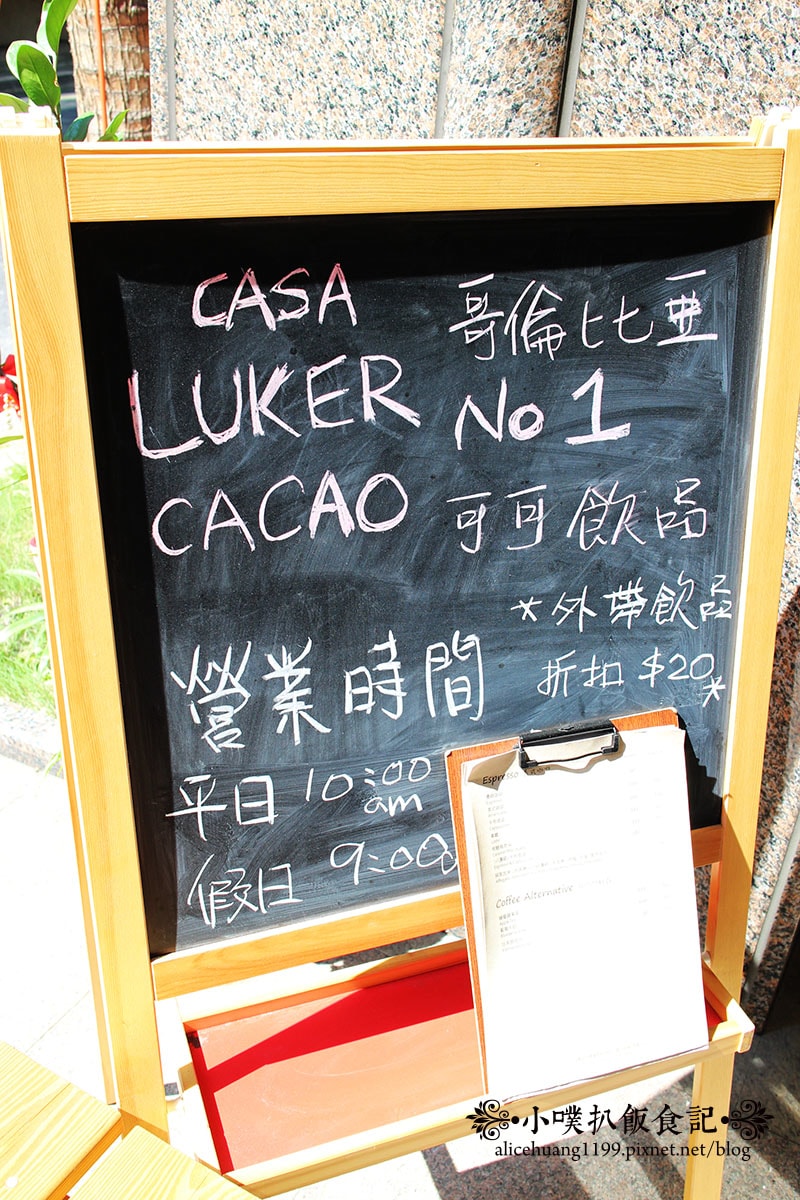 CASA
LUKER
CACAO
哥倫比亞
No 1
可可飲品
*外帶飲品
折扣 $20*
營業時間
平日 10:00 am
假日 9:00
Espresso
Coffee Alternative
小噗扒飯食記
alicehuang1199.pixnet.net/blog